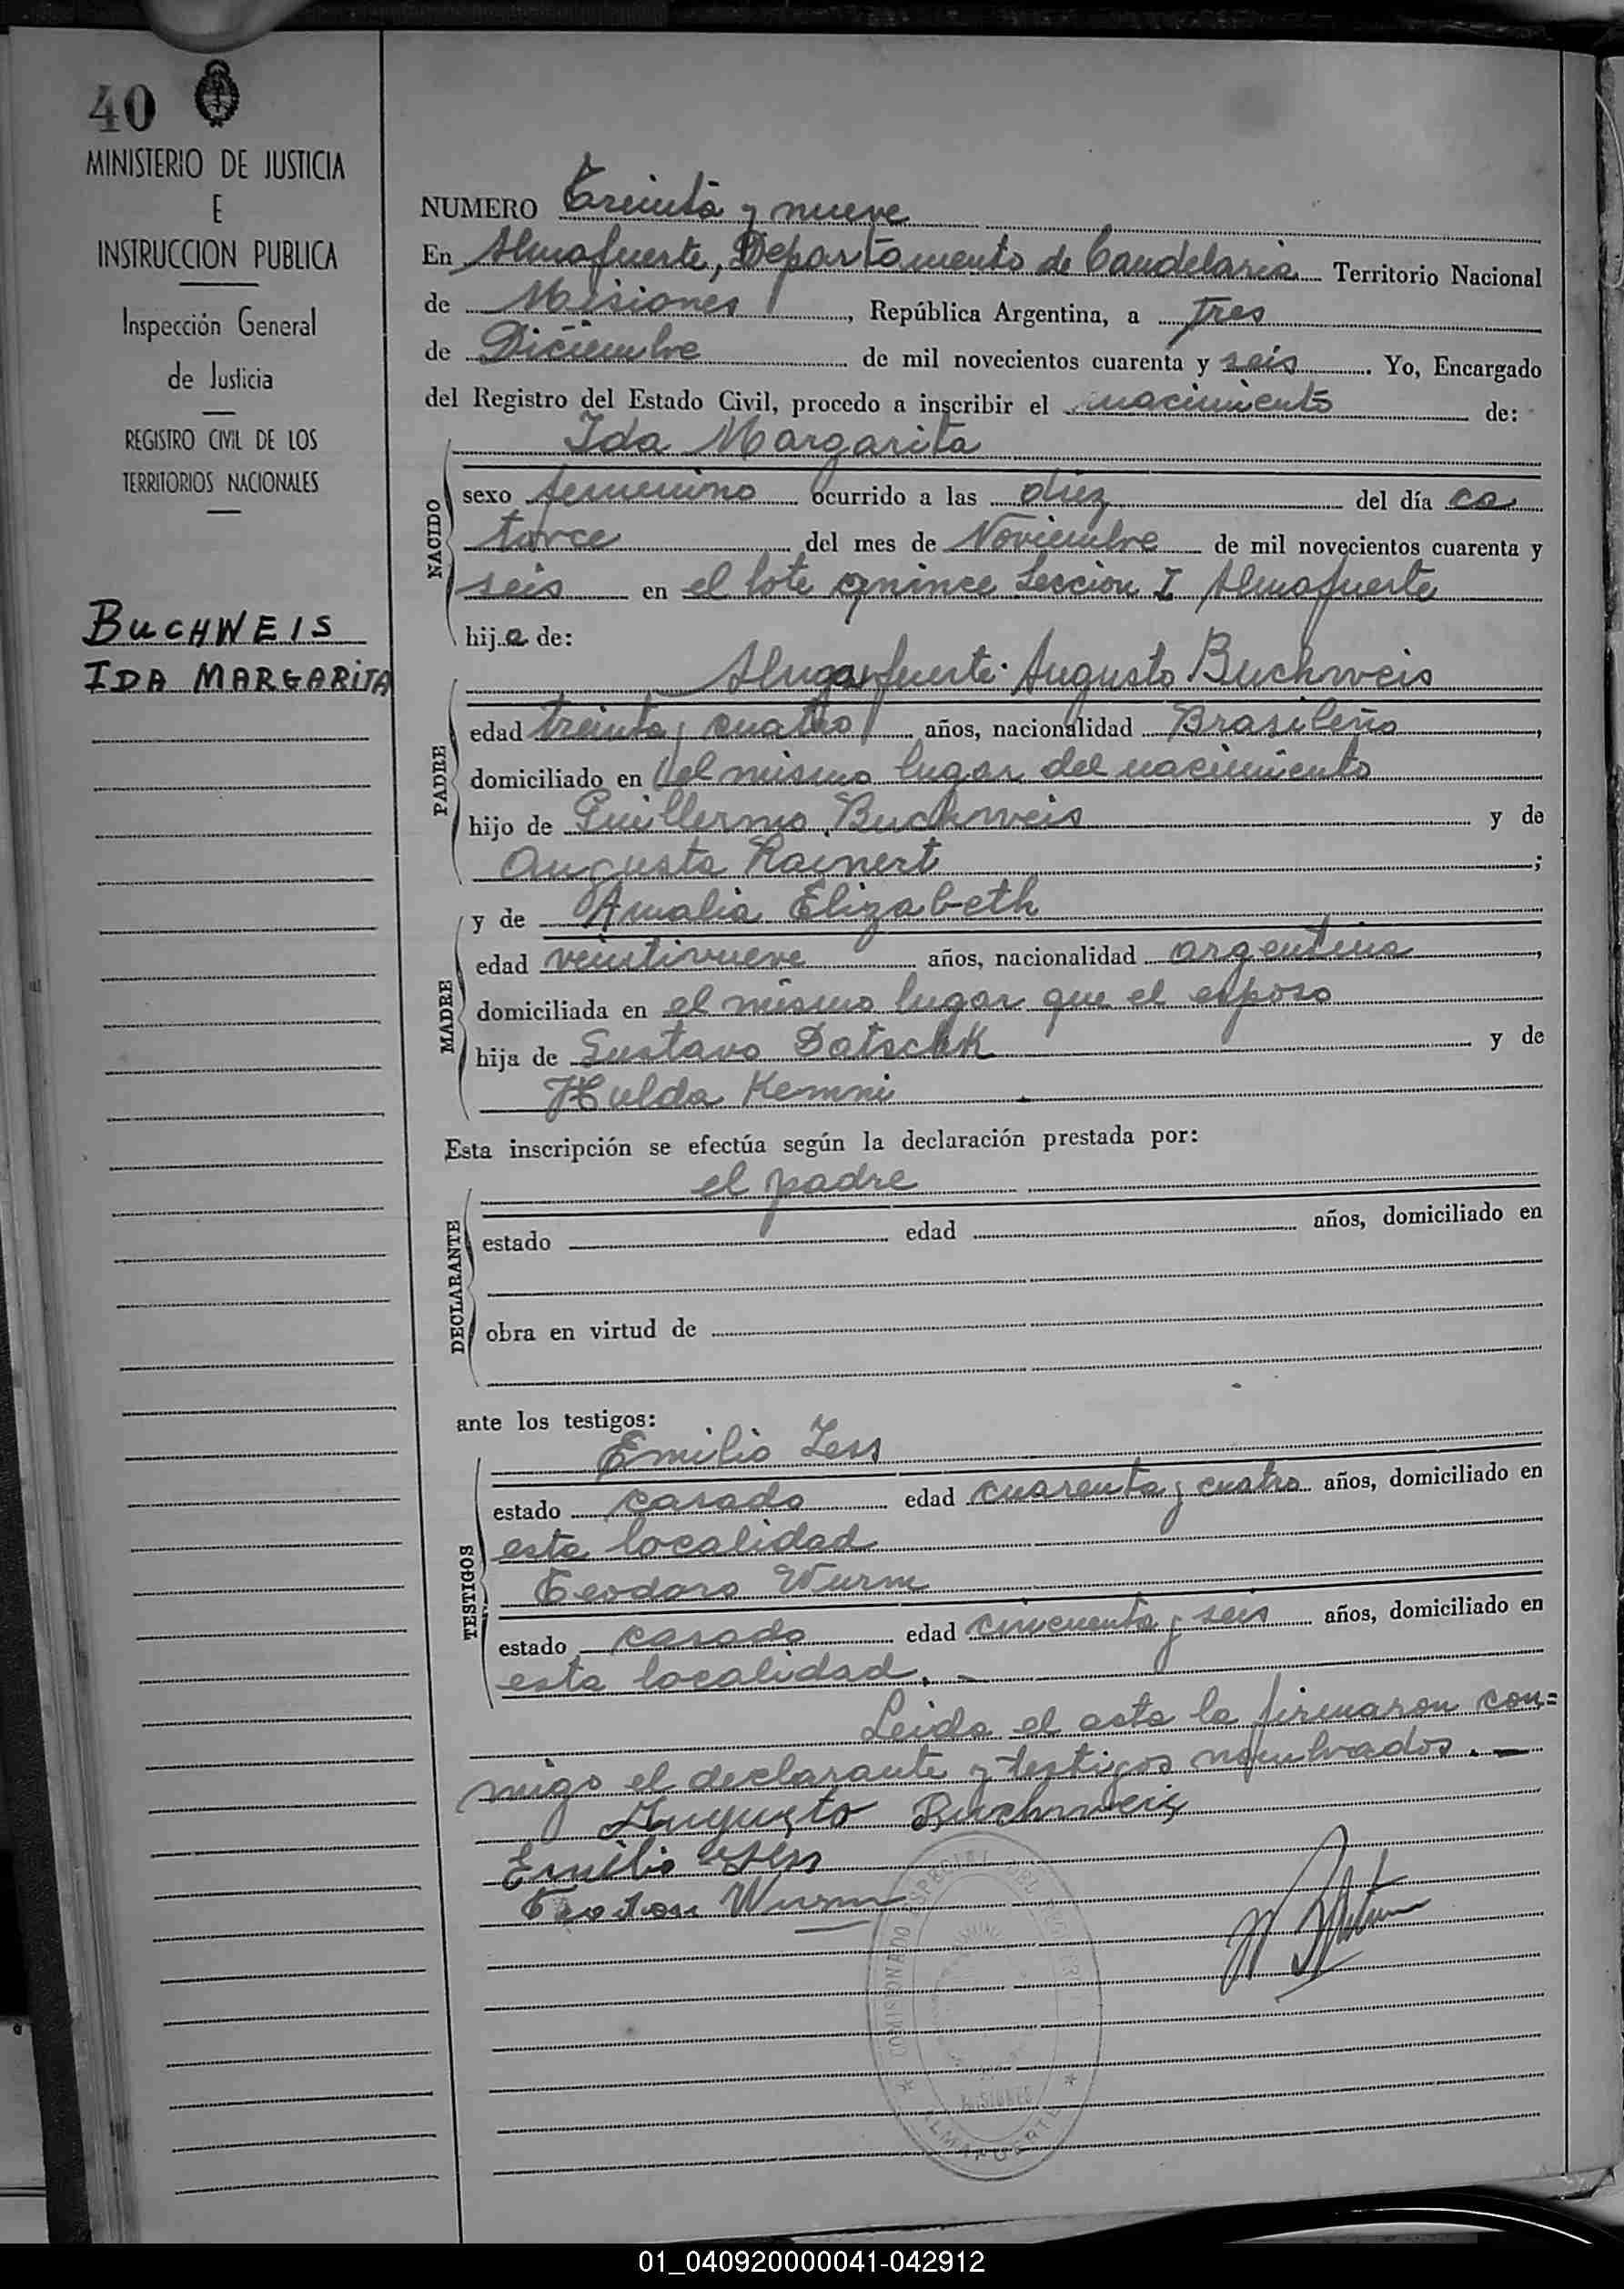 40
MINISTERIO DE JUSTICIA
E
INSTRUCCION PUBLICA
Inspección General
de Justicia
REGISTRO CIVIL DE LOS
TERRITORIOS NACIONALES
BUCHWEIS
IDA MARGARITA
NUMERO Treinta y nueve
En Almafuerte, Departamento de Candelaria Territorio Nacional
de Misiones, República Argentina, a tres
de Diciembre de mil novecientos cuarenta y seis. Yo, Encargado
del Registro del Estado Civil, procedo a inscribir el nacimiento de:
Ida Margarita
NACIDO
sexo femenino ocurrido a las diez del día ca
torce del mes de Noviembre de mil novecientos cuarenta y
seis en el lote quince Seccion I Almafuerte
hija de:
Augusto Buchweis
PADRE
edad treinta y cuatro años, nacionalidad Brasileña,
domiciliado en el mismo lugar del nacimiento
hijo de Guillermo Buchweis y de
Augusta Rainert;
y de Amalia Elizabeth
MADRE
edad veintinueve años, nacionalidad argentina,
domiciliada en el mismo lugar que el esposo
hija de Gustavo Datschk y de
Hulda Kemni
Esta inscripción se efectúa según la declaración prestada por:
el padre
DECLARANTE
estado edad años, domiciliado en
obra en virtud de
ante los testigos:
Emilio Zess
TESTIGOS
estado casado edad cuarenta y cuatro años, domiciliado en
esta localidad
Teodoro Wurm
estado casado edad cincuenta y seis años, domiciliado en
esta localidad.-
Leida el acta la firmaron con=
migo el declarante y testigos nombrados.-
Augusto Buchweis
Emilio
Wurm
COMISIONADO ESPECIAL DEL
MISIONES
ALMAFUERTE
01_040920000041-042912